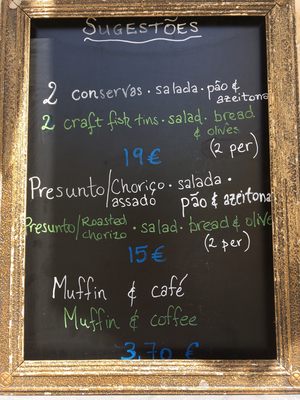 SUGESTÕES
2 conservas · salada · pão &
azeitona
2 craft fish tins · salad · bread
& olives
(2 per)
19 €
Presunto/Choriço · salada ·
assado pão & azeitona
Presunto/Roasted · salad · bread & olive
chorizo
(2 per)
15 €
Muffin & café
Muffin & coffee
3,70 €